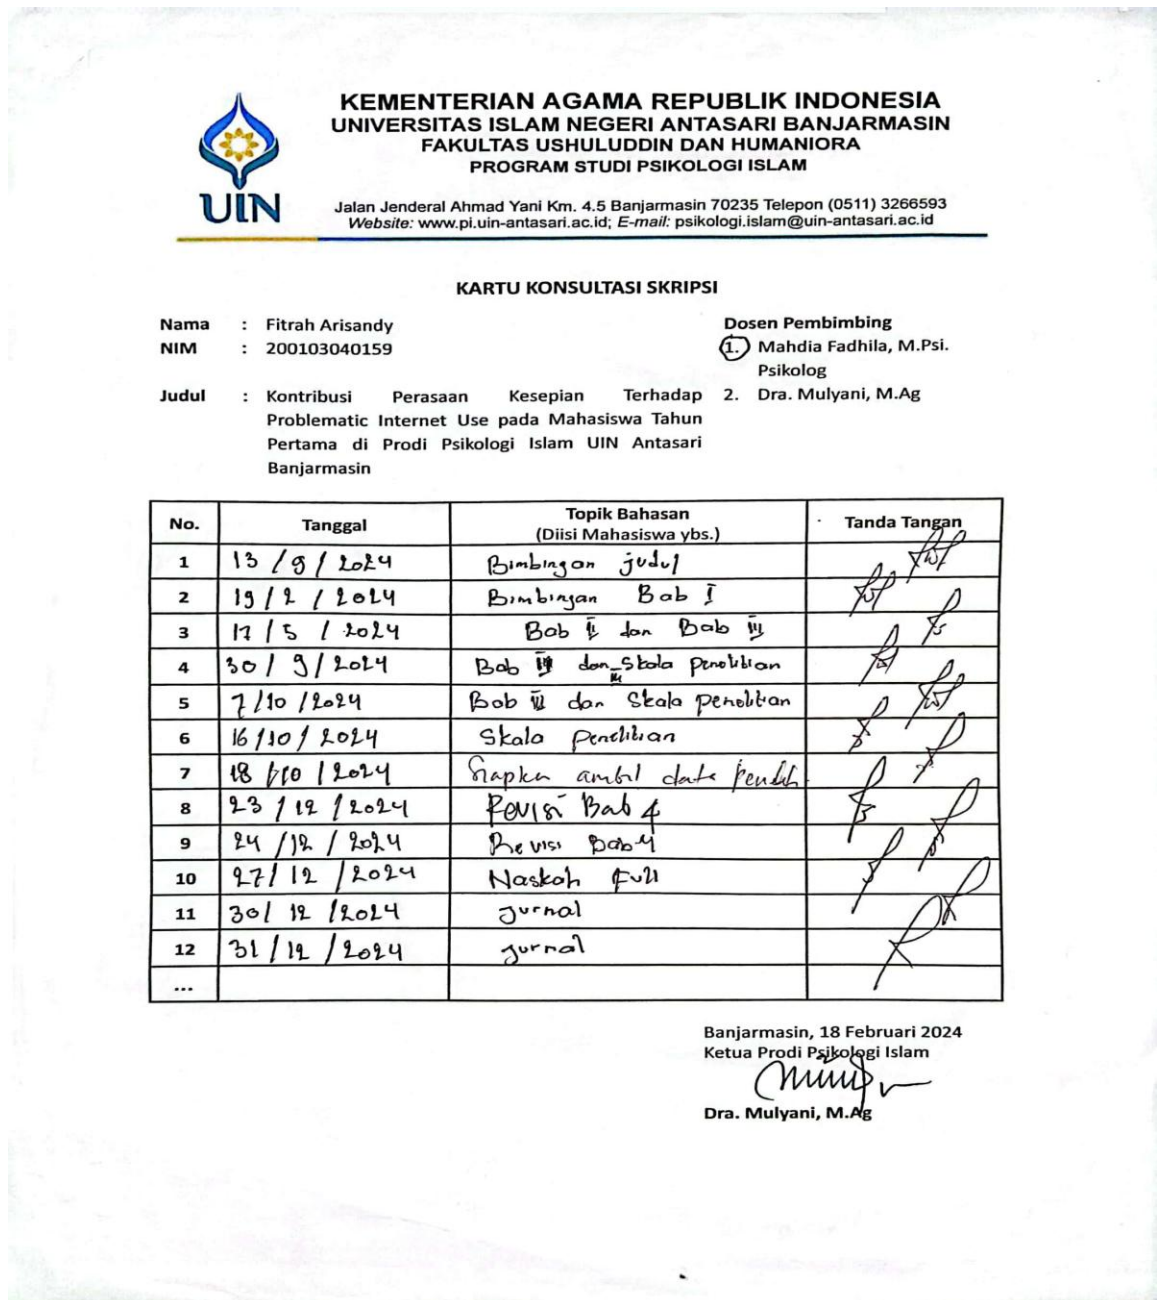 KEMENTERIAN AGAMA REPUBLIK INDONESIA
UNIVERSITAS ISLAM NEGERI ANTASARI BANJARMASIN
FAKULTAS USHULUDDIN DAN HUMANIORA
PROGRAM STUDI PSIKOLOGI ISLAM
UIN
Jalan Jenderal Ahmad Yani Km. 4.5 Banjarmasin 70235 Telepon (0511) 3266593
Website: www.pi.uin-antasari.ac.id; E-mail: psikologi.islam@uin-antasari.ac.id
KARTU KONSULTASI SKRIPSI
Nama : Fitrah Arisandy
NIM : 200103040159
Judul : Kontribusi Perasaan Kesepian Terhadap
Problematic Internet Use pada Mahasiswa Tahun
Pertama di Prodi Psikologi Islam UIN Antasari
Banjarmasin
Dosen Pembimbing
1. Mahdia Fadhila, M.Psi.
Psikolog
2. Dra. Mulyani, M.Ag
No. Tanggal Topik Bahasan (Diisi Mahasiswa ybs.) Tanda Tangan
1 13 / 9 / 2024 Bimbingan judul
2 19 / 2 / 2024 Bimbingan Bab I
3 17 / 5 / 2024 Bab II dan Bab III
4 30 / 9 / 2024 Bab III dan Skala penelitian
5 7/10 /2024 Bab III dan Skala penelitian
6 16/10 / 2024 Skala penelitian
7 18 /10 / 2024 ambil data
8 23 / 12 / 2024 Revisi Bab 4
9 24 /12 / 2024 Revisi Bab 4
10 27/ 12 /2024 Naskah Full
11 30/ 12 /2024 Jurnal
12 31 / 12 / 2024 Jurnal
...
Banjarmasin, 18 Februari 2024
Ketua Prodi Psikologi Islam
Dra. Mulyani, M.Ag